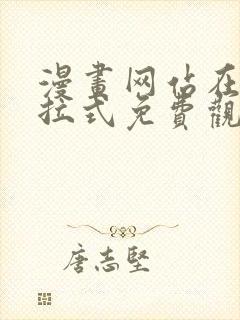 漫畫网佔在
拉式免費觀
唐志堅